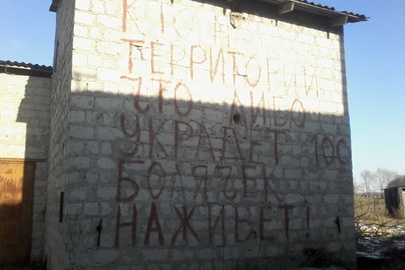 КТО
ТЕРРИТОРИИ
ЧТО ЛИБО
УКРАДЁТ 100
БОЛЯЧЕК
!НАЖИВЕТ!